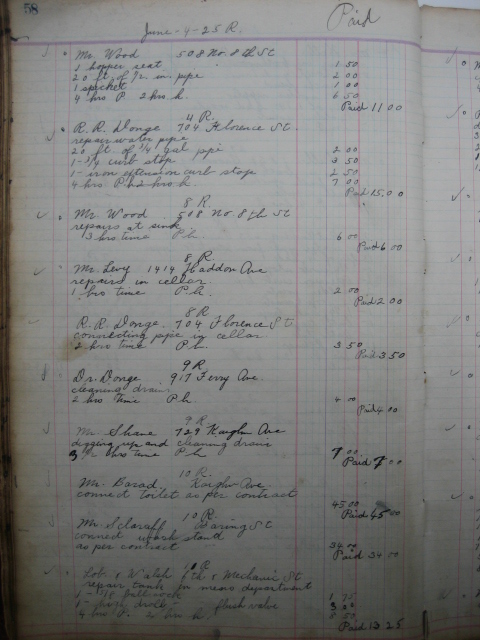 58
June-4-25 R.
Paid
Mr. Wood 508 No 8th St
1 hopper seat 1 50
20 ft of in pipe 2 00
1 spicket 1 00
4 hrs P. 2 hrs h. 6 50
Paid 11 00
4 R.
R. R. Donge 704 Florence St.
repair water pipe
20 ft of 3/4 gal pipe 2 00
1-3/4 curb stop 3 50
1-iron extension curb stop 2 50
4 hrs P. h 2 hrs h 7 00
Paid 15,00
8 R
Mr. Wood 508 No 8th St
repairs at sink
3 hrs time P h 6 00
Paid 6 00
8 R.
Mr. Levy 1414 Haddon Ave
repairs in cellar
1 hrs time P. h. 2 00
Paid 2 00
8 R
R. R. Donge. 704 Florence St.
connecting pipe in cellar
2 hrs time P h. 3 50
Paid 3 50
9 R
Dr. Donge. 917 Ferry Ave.
cleaning drain
2 hrs time P h 4 00
Paid 4 00
9 R
Mr. Shane 729 Kaighn Ave
digging up and cleaning drain
3 hrs time P. h 7 00
Paid 7 00
10 R.
Mr. Barad. Kaighn Ave.
connect toilet as per contract
45 00
Paid 45 00
10 R.
Mr. Sclaroff Baring St
connect wash stand
as per contract 34 00
Paid 34 00
R
& Walsh 7th & Mechanic St
repair tank for mens department
1- ball cock 1 75
1- flush valve 3 00
4 hrs P. 2 hrs h. 8
Paid 13 25